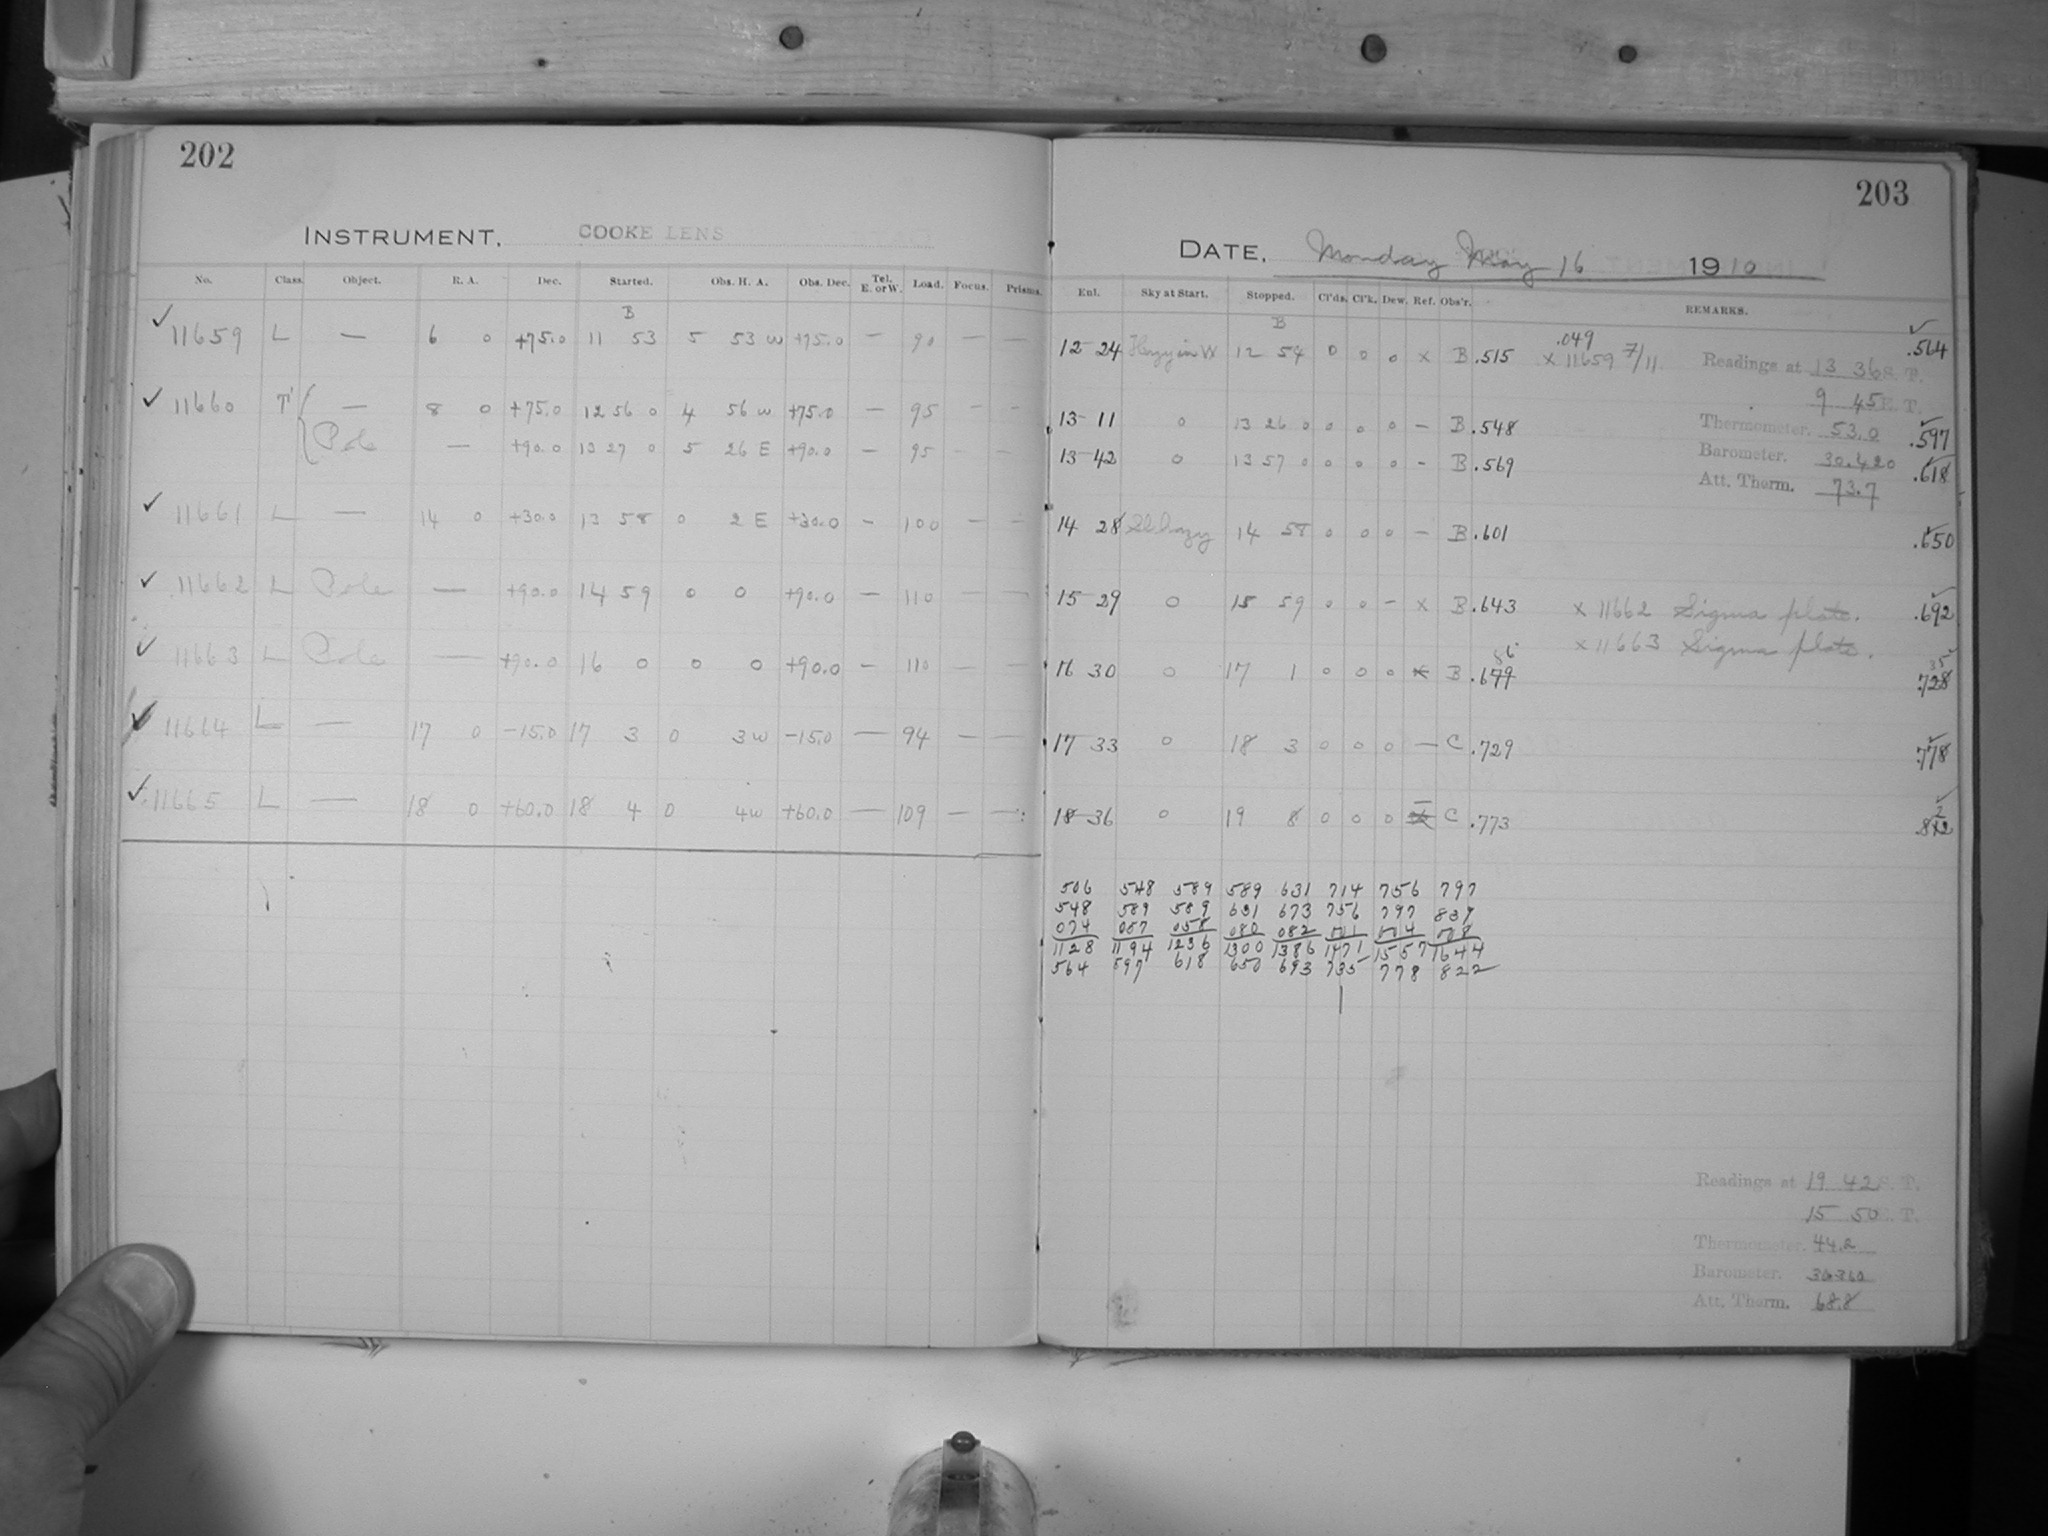 202
INSTRUMENT. COOKE LENS
No. Class. Object. R. A. Dec. Started. Obs. H. A. Obs. Dec. Tel. E. or W. Load. Focus. Prisms.
B
✓ 11659 L — 6 0 +75.0 11 53 5 53 W +75.0 — 90 — —
✓ 11660 T' — 8 0 +75.0 12 56 0 4 56 W +75.0 — 95 — —
Pole — +90.0 13 27 0 5 26 E +90.0 — 95 — —
✓ 11661 L — 14 0 +30.0 13 58 0 2 E +30.0 — 100 — —
✓ 11662 L Pole — +90.0 14 59 0 0 +90.0 — 110 — —
✓ 11663 L Pole — +90.0 16 0 0 0 +90.0 — 110 — —
✓ 11664 L — 17 0 -15.0 17 3 0 3 W -15.0 — 94 — —
✓ 11665 L — 18 0 +60.0 18 4 0 4 W +60.0 — 109 — —
203
DATE. Monday May 16 1910
Enl. Sky at Start. Stopped. Cl'ds. Cl'k. Dew. Ref. Obs'r. REMARKS.
B
12 24 Hazy in W 12 54 0 0 0 x B .515 .049 x 11659 7/11 .564
Readings at 13 36 S. T.
9 45 E. T.
13 11 0 13 26 0 0 0 0 — B .548 Thermometer. 53.0 .597
13 42 0 13 57 0 0 0 0 — B .569 Barometer. 30.420 .618
Att. Therm. 73.7
14 28 Sl. hazy 14 58 0 0 0 — B .601 .650
15 29 0 15 59 0 0 — x B .643 x 11662 Sigma plate. .692
x 11663 Sigma plate.
16 30 0 17 1 0 0 0 x B .679 86 .728 35
17 33 0 18 3 0 0 0 — C .729 .778
18 36 0 19 8 0 0 0 — C .773 .822
506 548 589 589 631 714 756 797
548 589 589 631 673 756 797 839
074 057 058 080 082 001 004 008
1128 1194 1236 1300 1386 1471 1557 1644
564 597 618 650 693 735 778 822
Readings at 19 42 S. T.
15 50 E. T.
Thermometer. 44.2
Barometer. 30.360
Att. Therm. 68.8